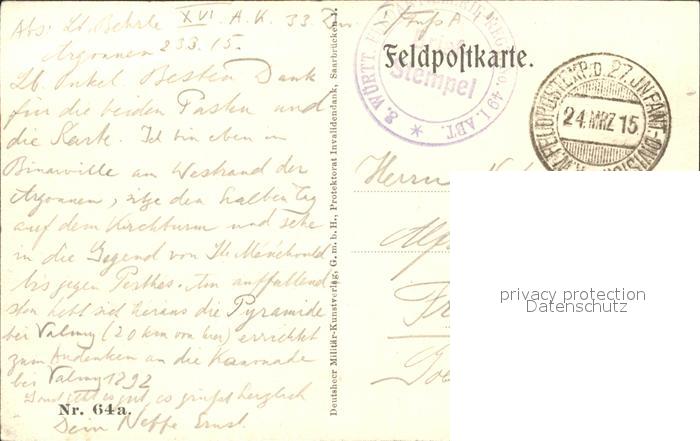 Abs: Lt. Behrle XVI. A.K. 33.
Argonnen 23 3. 15.
Feldpostkarte.
Lb. Onkel. Besten Dank
für die beiden Pasten und
die Karte. Ich bin eben in
Binarville am Westrand der
Argonnen, sitze den halben Tag
auf dem Kirchturm und sehe
in die Gegend von St. Menehould
bis gegen Perthes. Am auffallend
sten hebt sich heraus die Pyramide
bei Valmy (20 km von hier) errichtet
zum Andenken an die Kanonade
bei Valmy 1792
Sonst geht es gut, es grüßt herzlich
Dein Neffe Ernst.
Nr. 64a.
Deutscher Militär-Kunstverlag, G. m. b. H., Protektorat Invalidendank, Saarbrücken 1.
8. WÜRTT. No. 49 I. ABT.
Brief
Stempel
K.W. FELDPOSTEXP. D. 27. INFANT-DIVISION
24. MRZ 15
Herrn
privacy protection
Datenschutz